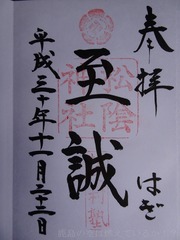 奉拝
はぎ
至誠
松陰
神社
平成三十年十一月二十二日